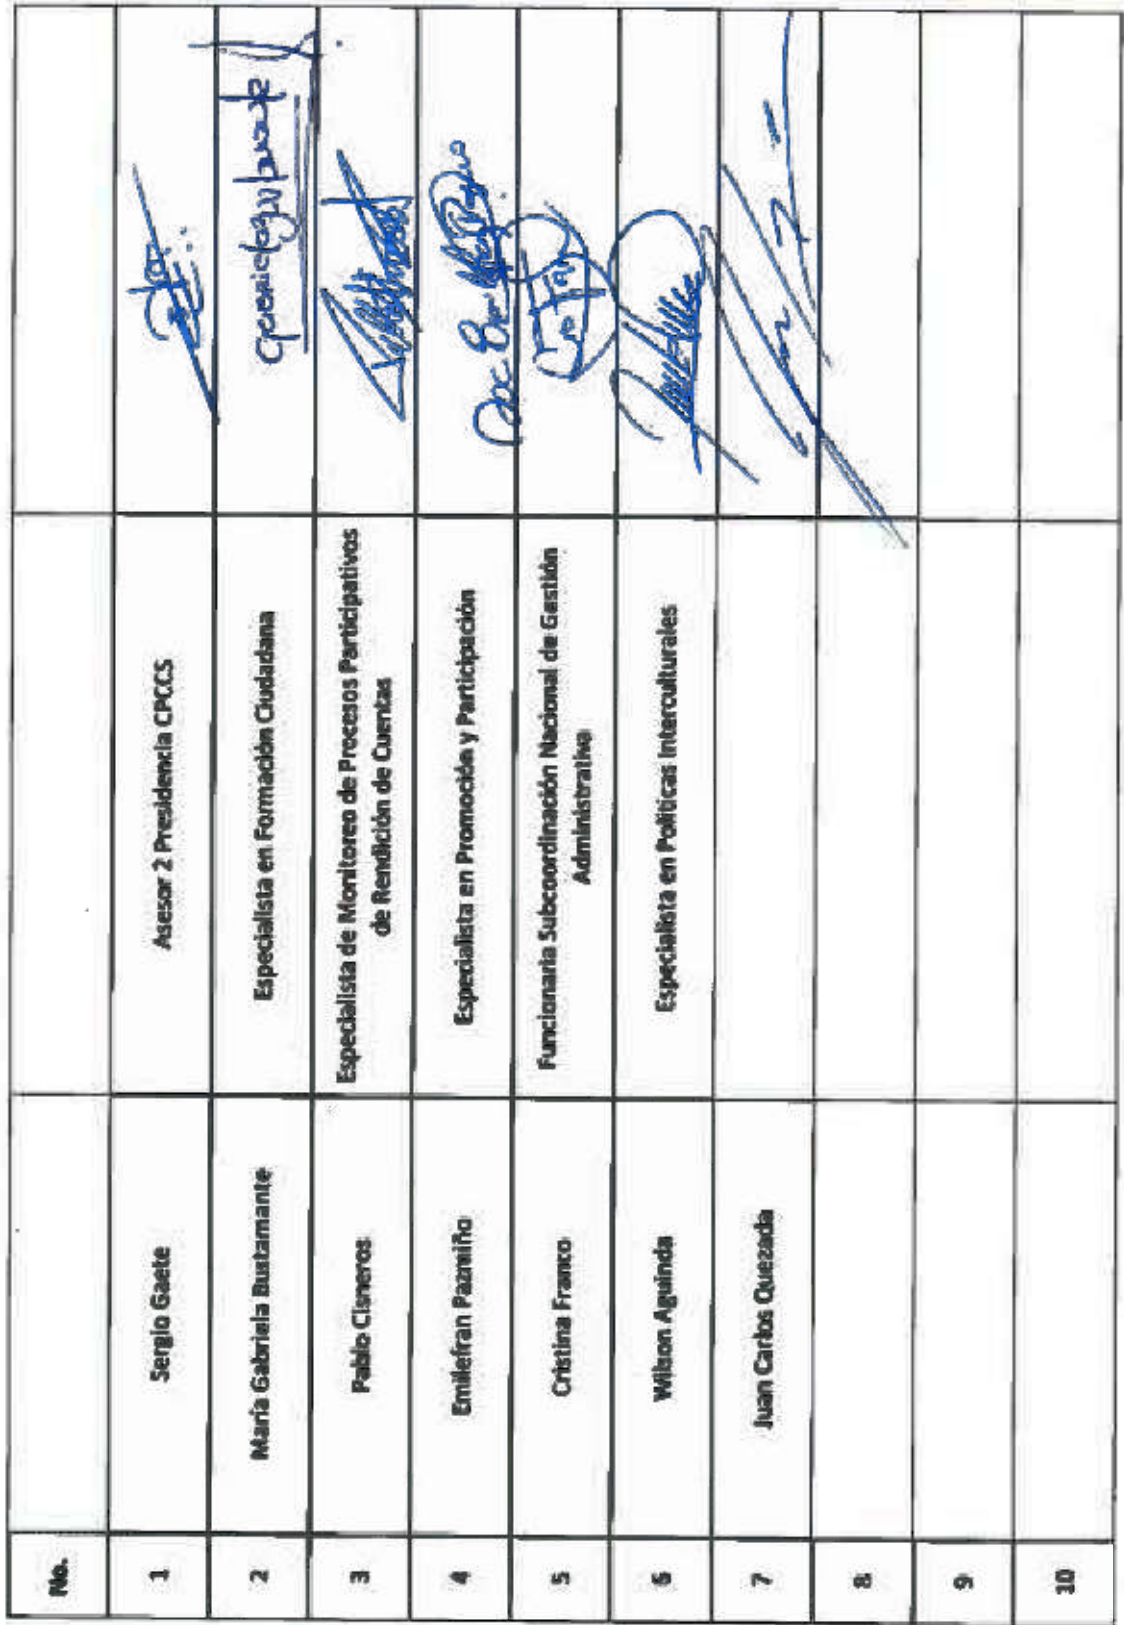 No.
1 Sergio Gaete Asesor 2 Presidencia CPCCS
2 María Gabriela Bustamante Especialista en Formación Ciudadana
3 Pablo Cisneros Especialista de Monitoreo de Procesos Participativos
de Rendición de Cuentas
4 Emilefran Pazmiño Especialista en Promoción y Participación
5 Cristina Franco Funcionaria Subcoordinación Nacional de Gestión
Administrativa
6 Wilson Aguinda Especialista en Políticas Interculturales
7 Juan Carlos Quezada
8
9
10